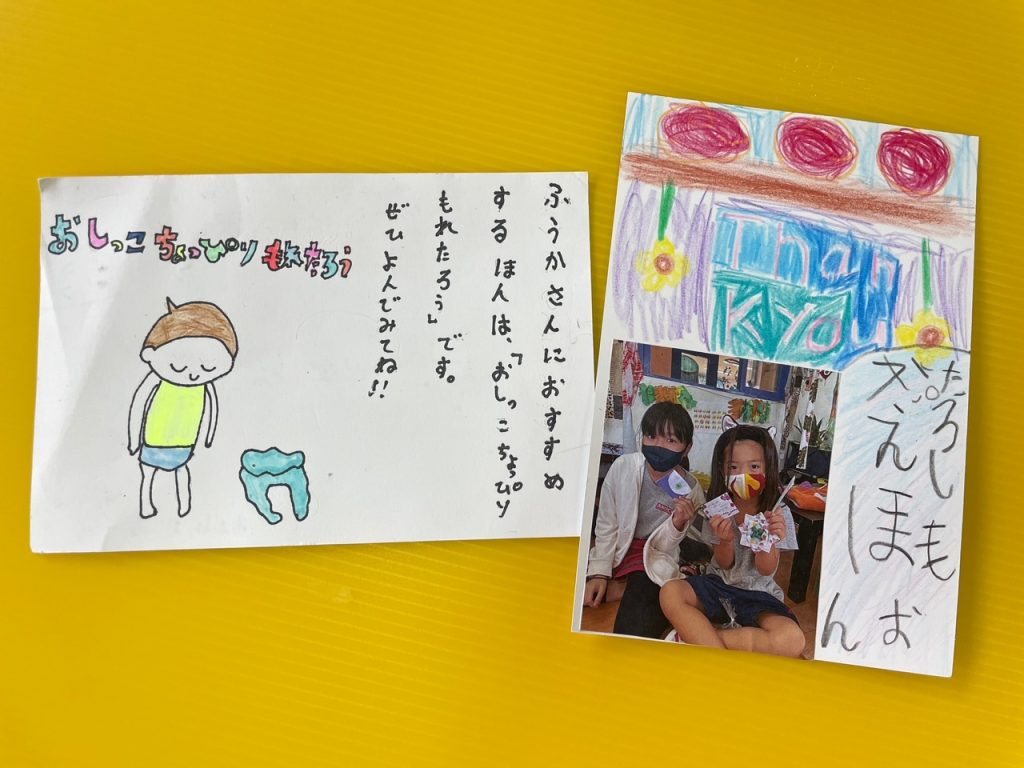 おしっこちょっぴりもれたろう
ふうかさんにおすすめ
する ほんは、「おしっこちょっぴり
もれたろう」です。
ぜひ よんでみてね!!
Than
KYou
たろしもお
えほん